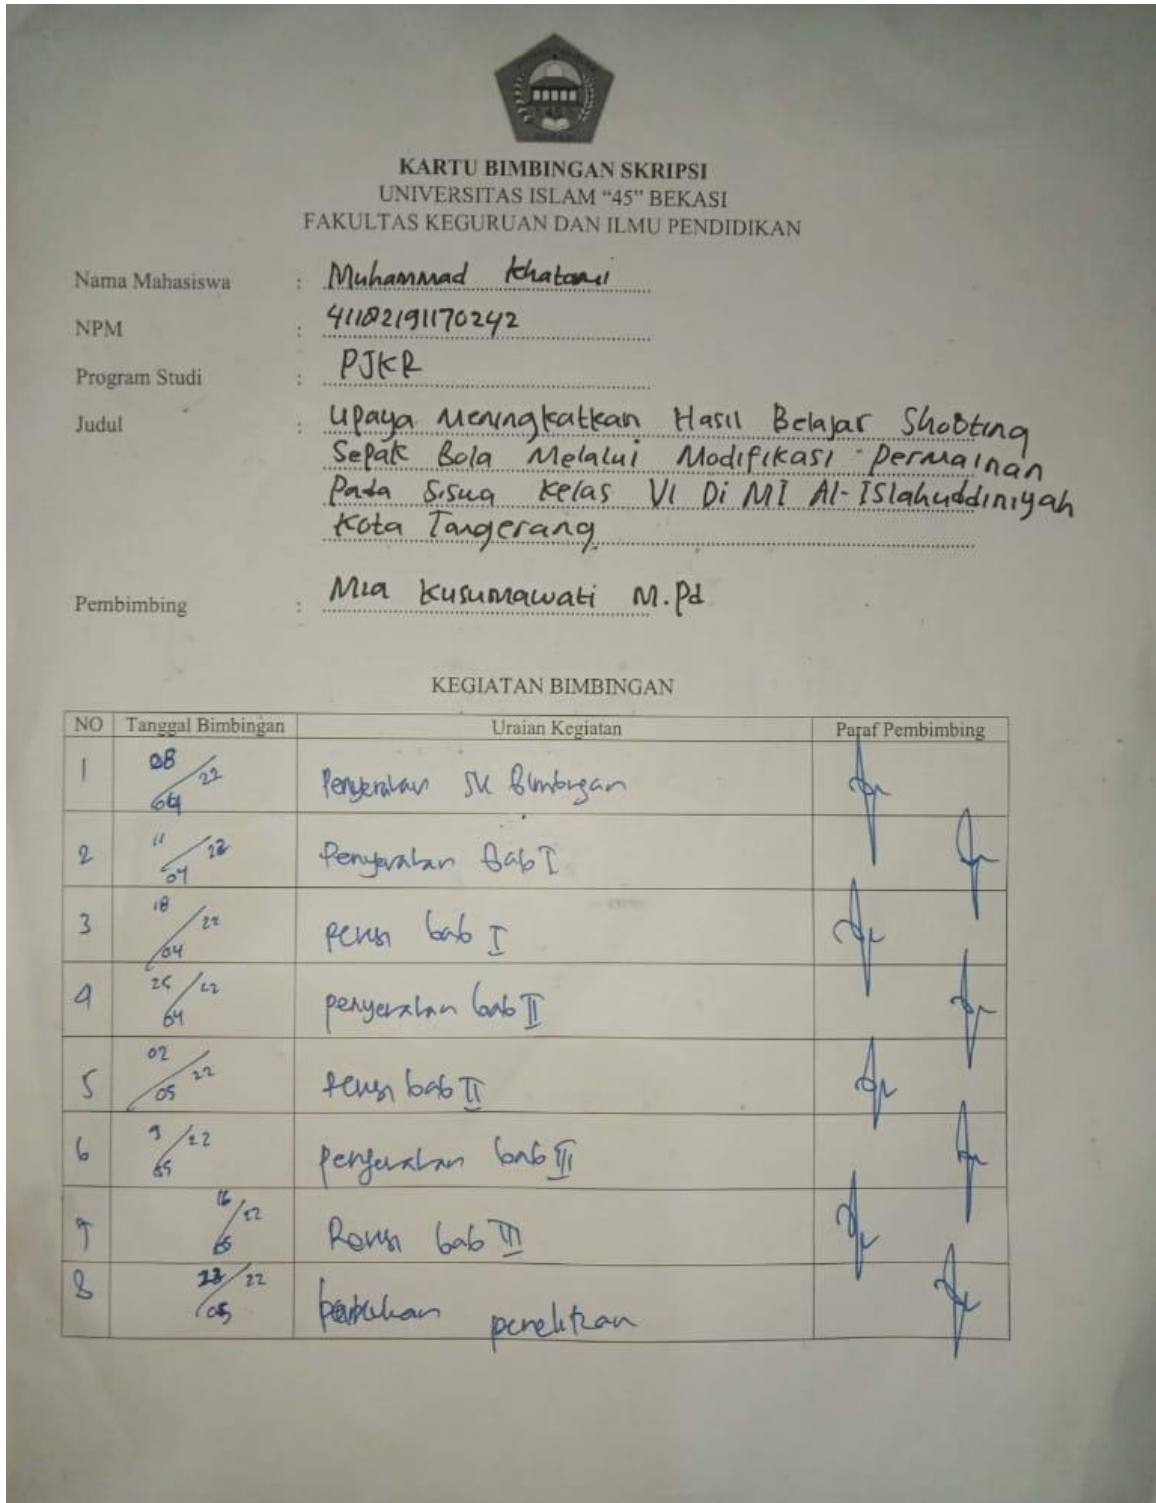 KARTU BIMBINGAN SKRIPSI
UNIVERSITAS ISLAM “45” BEKASI
FAKULTAS KEGURUAN DAN ILMU PENDIDIKAN
Nama Mahasiswa : Muhammad Khatami
NPM : 41182191170242
Program Studi : PJKR
Judul : Upaya Meningkatkan Hasil Belajar Shooting
Sepak Bola Melalui Modifikasi Permainan
Pada Siswa Kelas VI Di MI Al-Islahuddiniyah
Kota Tangerang
Pembimbing : Mia Kusumawati M.Pd
KEGIATAN BIMBINGAN
NO Tanggal Bimbingan Uraian Kegiatan Paraf Pembimbing
1 08/04/22 Penyerahan SK Bimbingan
2 11/04/22 Penyerahan Bab I
3 18/04/22 revisi bab I
4 25/04/22 penyerahan bab II
5 02/05/22 revisi bab II
6 9/05/22 penyerahan bab III
7 16/05/22 Revisi bab III
8 23/05/22 penelitian